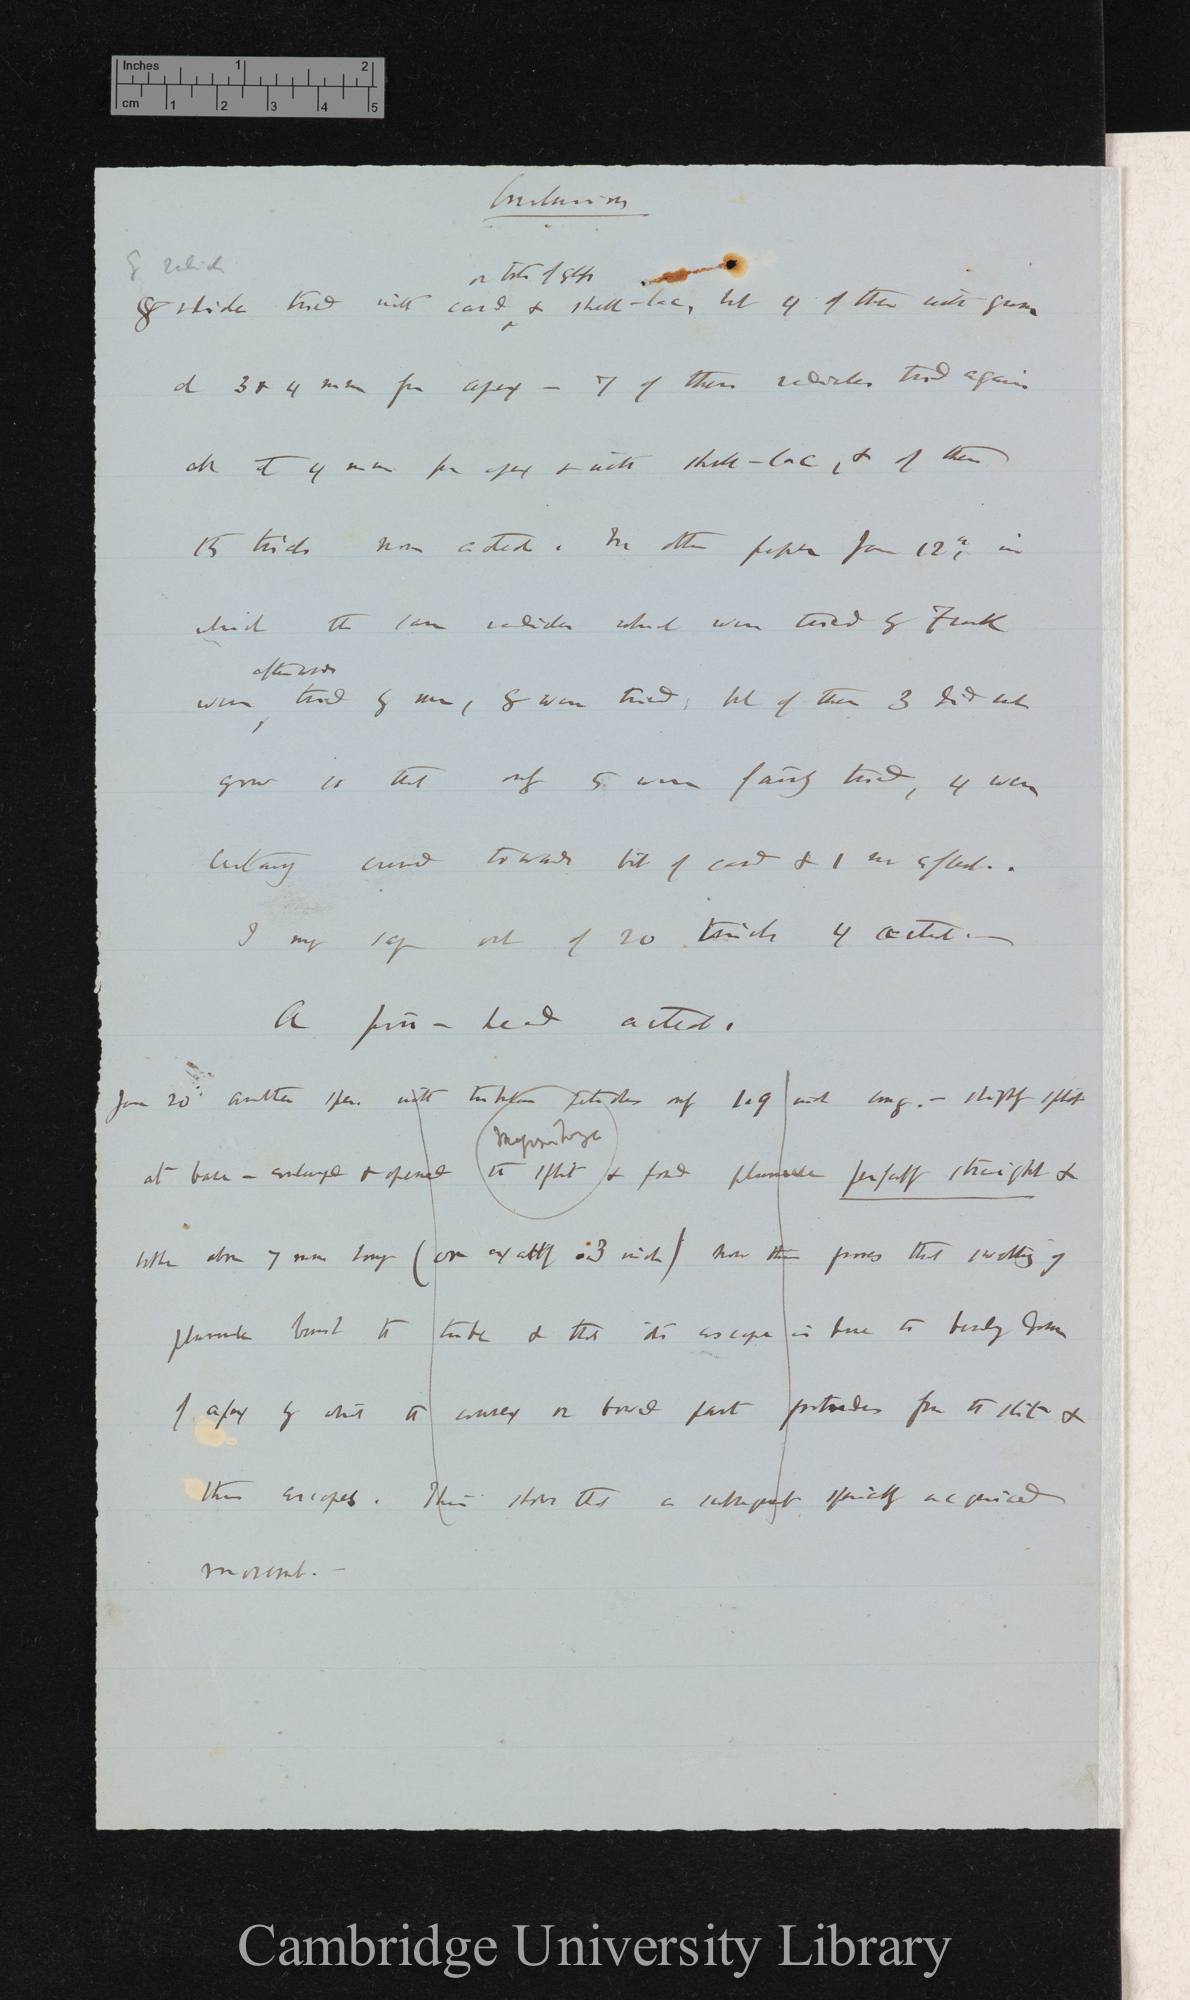 Inches 1 2
cm 1 2 3 4 5
Conclusion
8 radicles
or bits of glass
8 radicles tried with card & shell-lac, but 4 of them with gum
at 3 & 4 mm from apex — 7 of these radicles tried again
all at 4 mm from apex & with shell-lac, & of these
15 trials none acted. In other paper Jan 12th, in
which the same radicles which were tried by Frank
afterwards
were tried by me, 8 were tried, but of them 3 did not
grow so that only 5 were fairly tried, 4 were
certainly curved towards bit of card & 1 not affected.
I may say out of 20 trials 4 acted.—
A pin-head acted.
Jan 20 another spec. with petioles only 1.9 inch long. — slightly split
Megarrhiza
at base — enlarged & opened the split & found plumule perfectly straight &
little above 7 mm long (or exactly .3 inch) now this proves that swelling of
plumule burst the tube & that its escape is due to bending down
of apex by which the convex or bowed part protrudes from the slit &
then escapes. This shows that a subsequent specially acquired
movement.—
Cambridge University Library